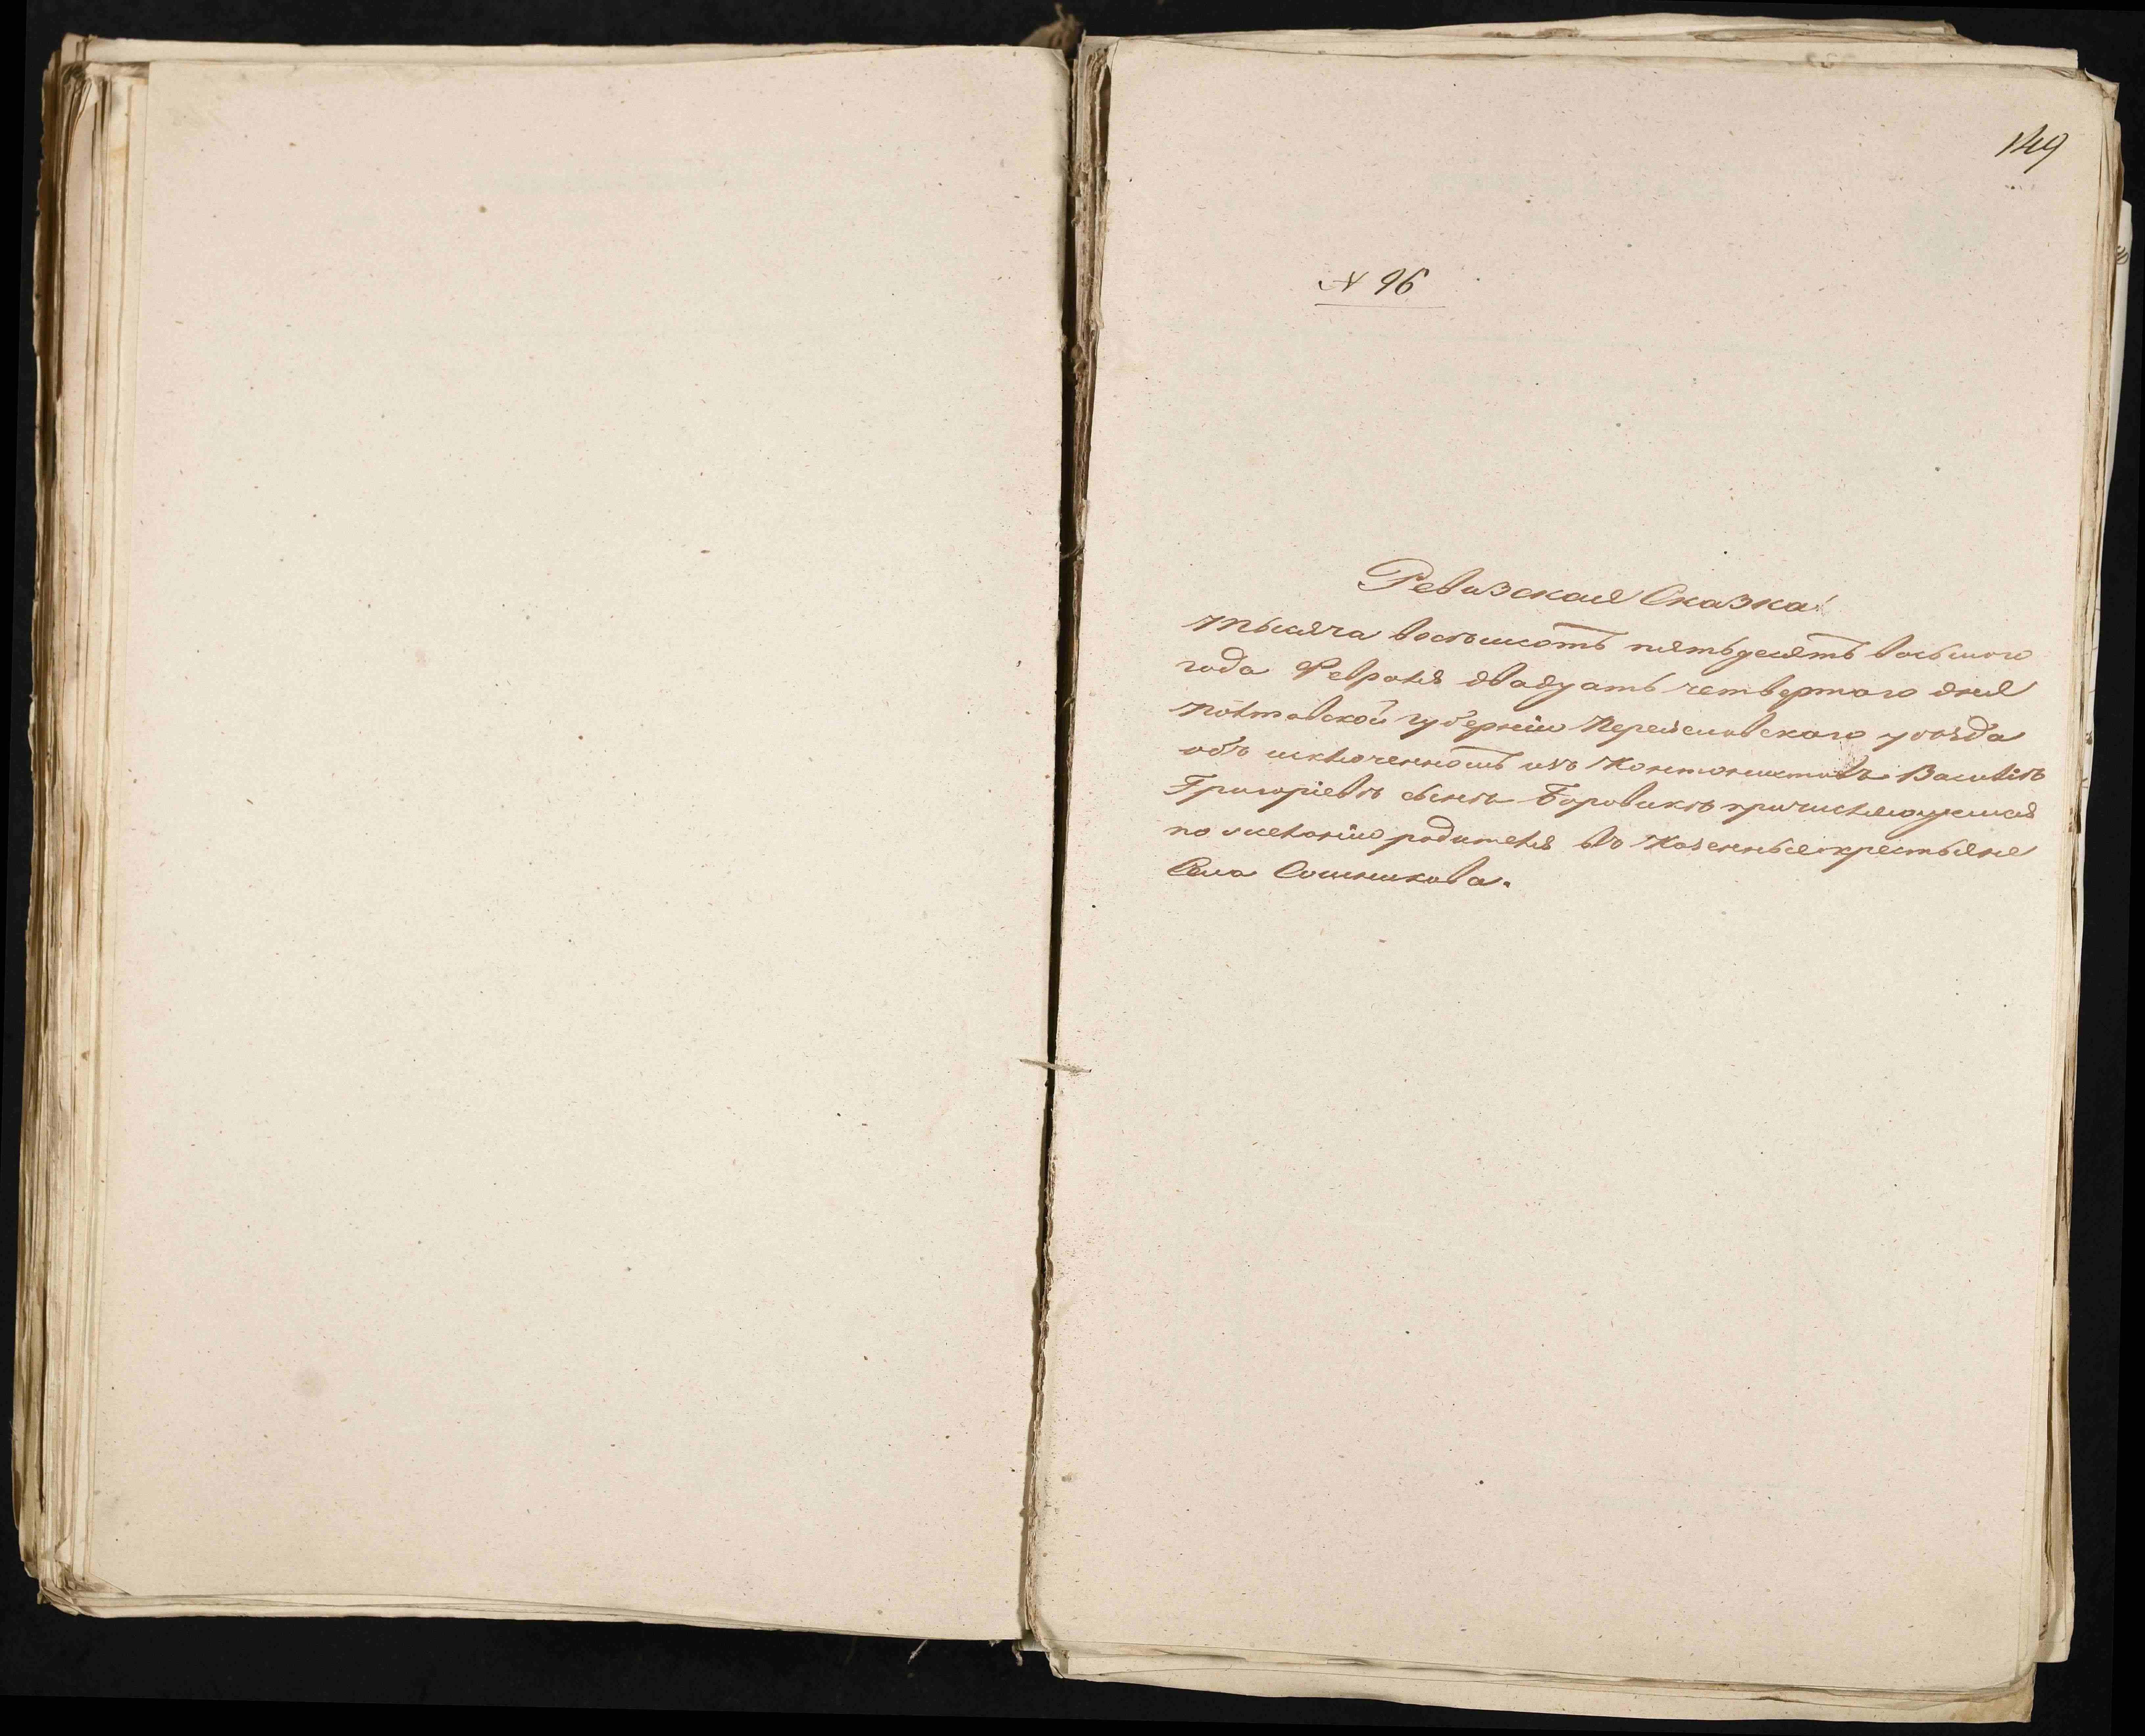 149
№ 96
Ревизская Сказка
тысяча восемсотъ пятьдесятъ восьмого
года Февраля двадцать четвертого дня
Полтавской губерніи Переяславского уѣзда
объ исключенномъ изъ Кантонистовъ Василіѣ
Григоріевѣ сынѣ Боровикѣ причисляющемся
по желанію родителя въ Казенные крестьяне
Села Сошникова.